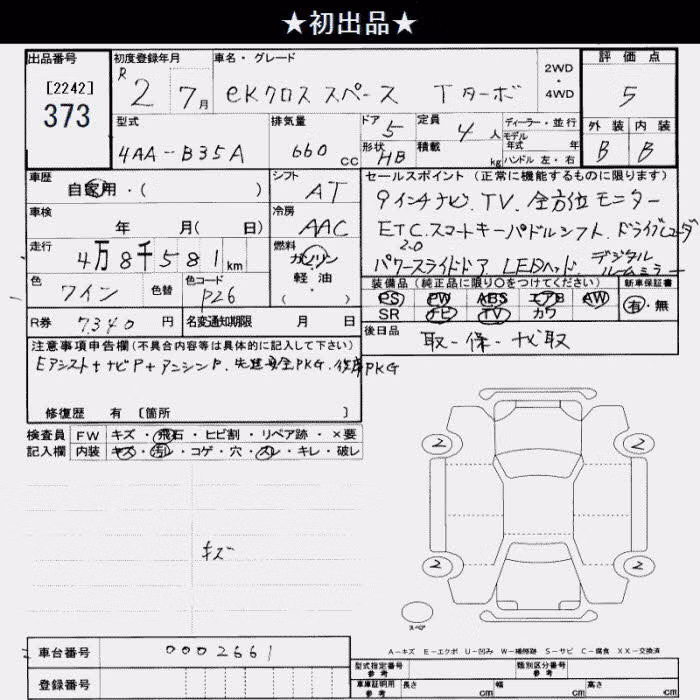 ★初出品★
出品番号
[2242]
373
初度登録年月
R 2 7月
車名・グレード
eKクロス スペース Tターボ
2WD
・
4WD
評価点
5
外装 内装
B B
型式
4AA-B35A
排気量
660 cc
ドア 5
形状 HB
定員 4 人
積載 kg
ディーラー・並行
モデル
年式 年
ハンドル 左・右
車歴
自家用・( )
シフト
AT
セールスポイント(正常に機能するものに限ります)
9インチナビ、TV、全方位モニター
ETC2.0、スマートキー、パドルシフト、ドライブレコーダ
パワースライドドア LEDヘッド、デジタルルームミラー
車検
年 月( 日)
冷房
AAC
走行
4万8千581km
燃料
ガソリン
軽・油
( ・ )
色
ワイン
色替
色コード
P26
装備品(純正品に限り〇をつけてください)
PS PW ABS エアB AW
SR ナビ TV カワ
新車保証書
有・無
R券 7340 円
名変通知期限 月 日
後日品
取-保-ナビ取
注意事項申告欄(不具合内容等は具体的に記入して下さい)
Eアシスト+ナビP+アラウンドP、先進安全PKG、後席PKG
修復歴 有 〔箇所 〕
検査員 FW キズ・飛石・ヒビ割・リペア跡・×要
記入欄 内装 キズ・汚レ・コゲ・穴・スレ・キレ・破レ
キズ
2 2
2 2
スペア
A-キズ E-エクボ U-凹み W-補修跡 S-サビ C-腐食 XX-交換済
車台番号 0002661
登録番号
型式指定番号
参考
類別区分番号
参考
車庫証明用
参考
長さ cm 幅 cm 高さ cm